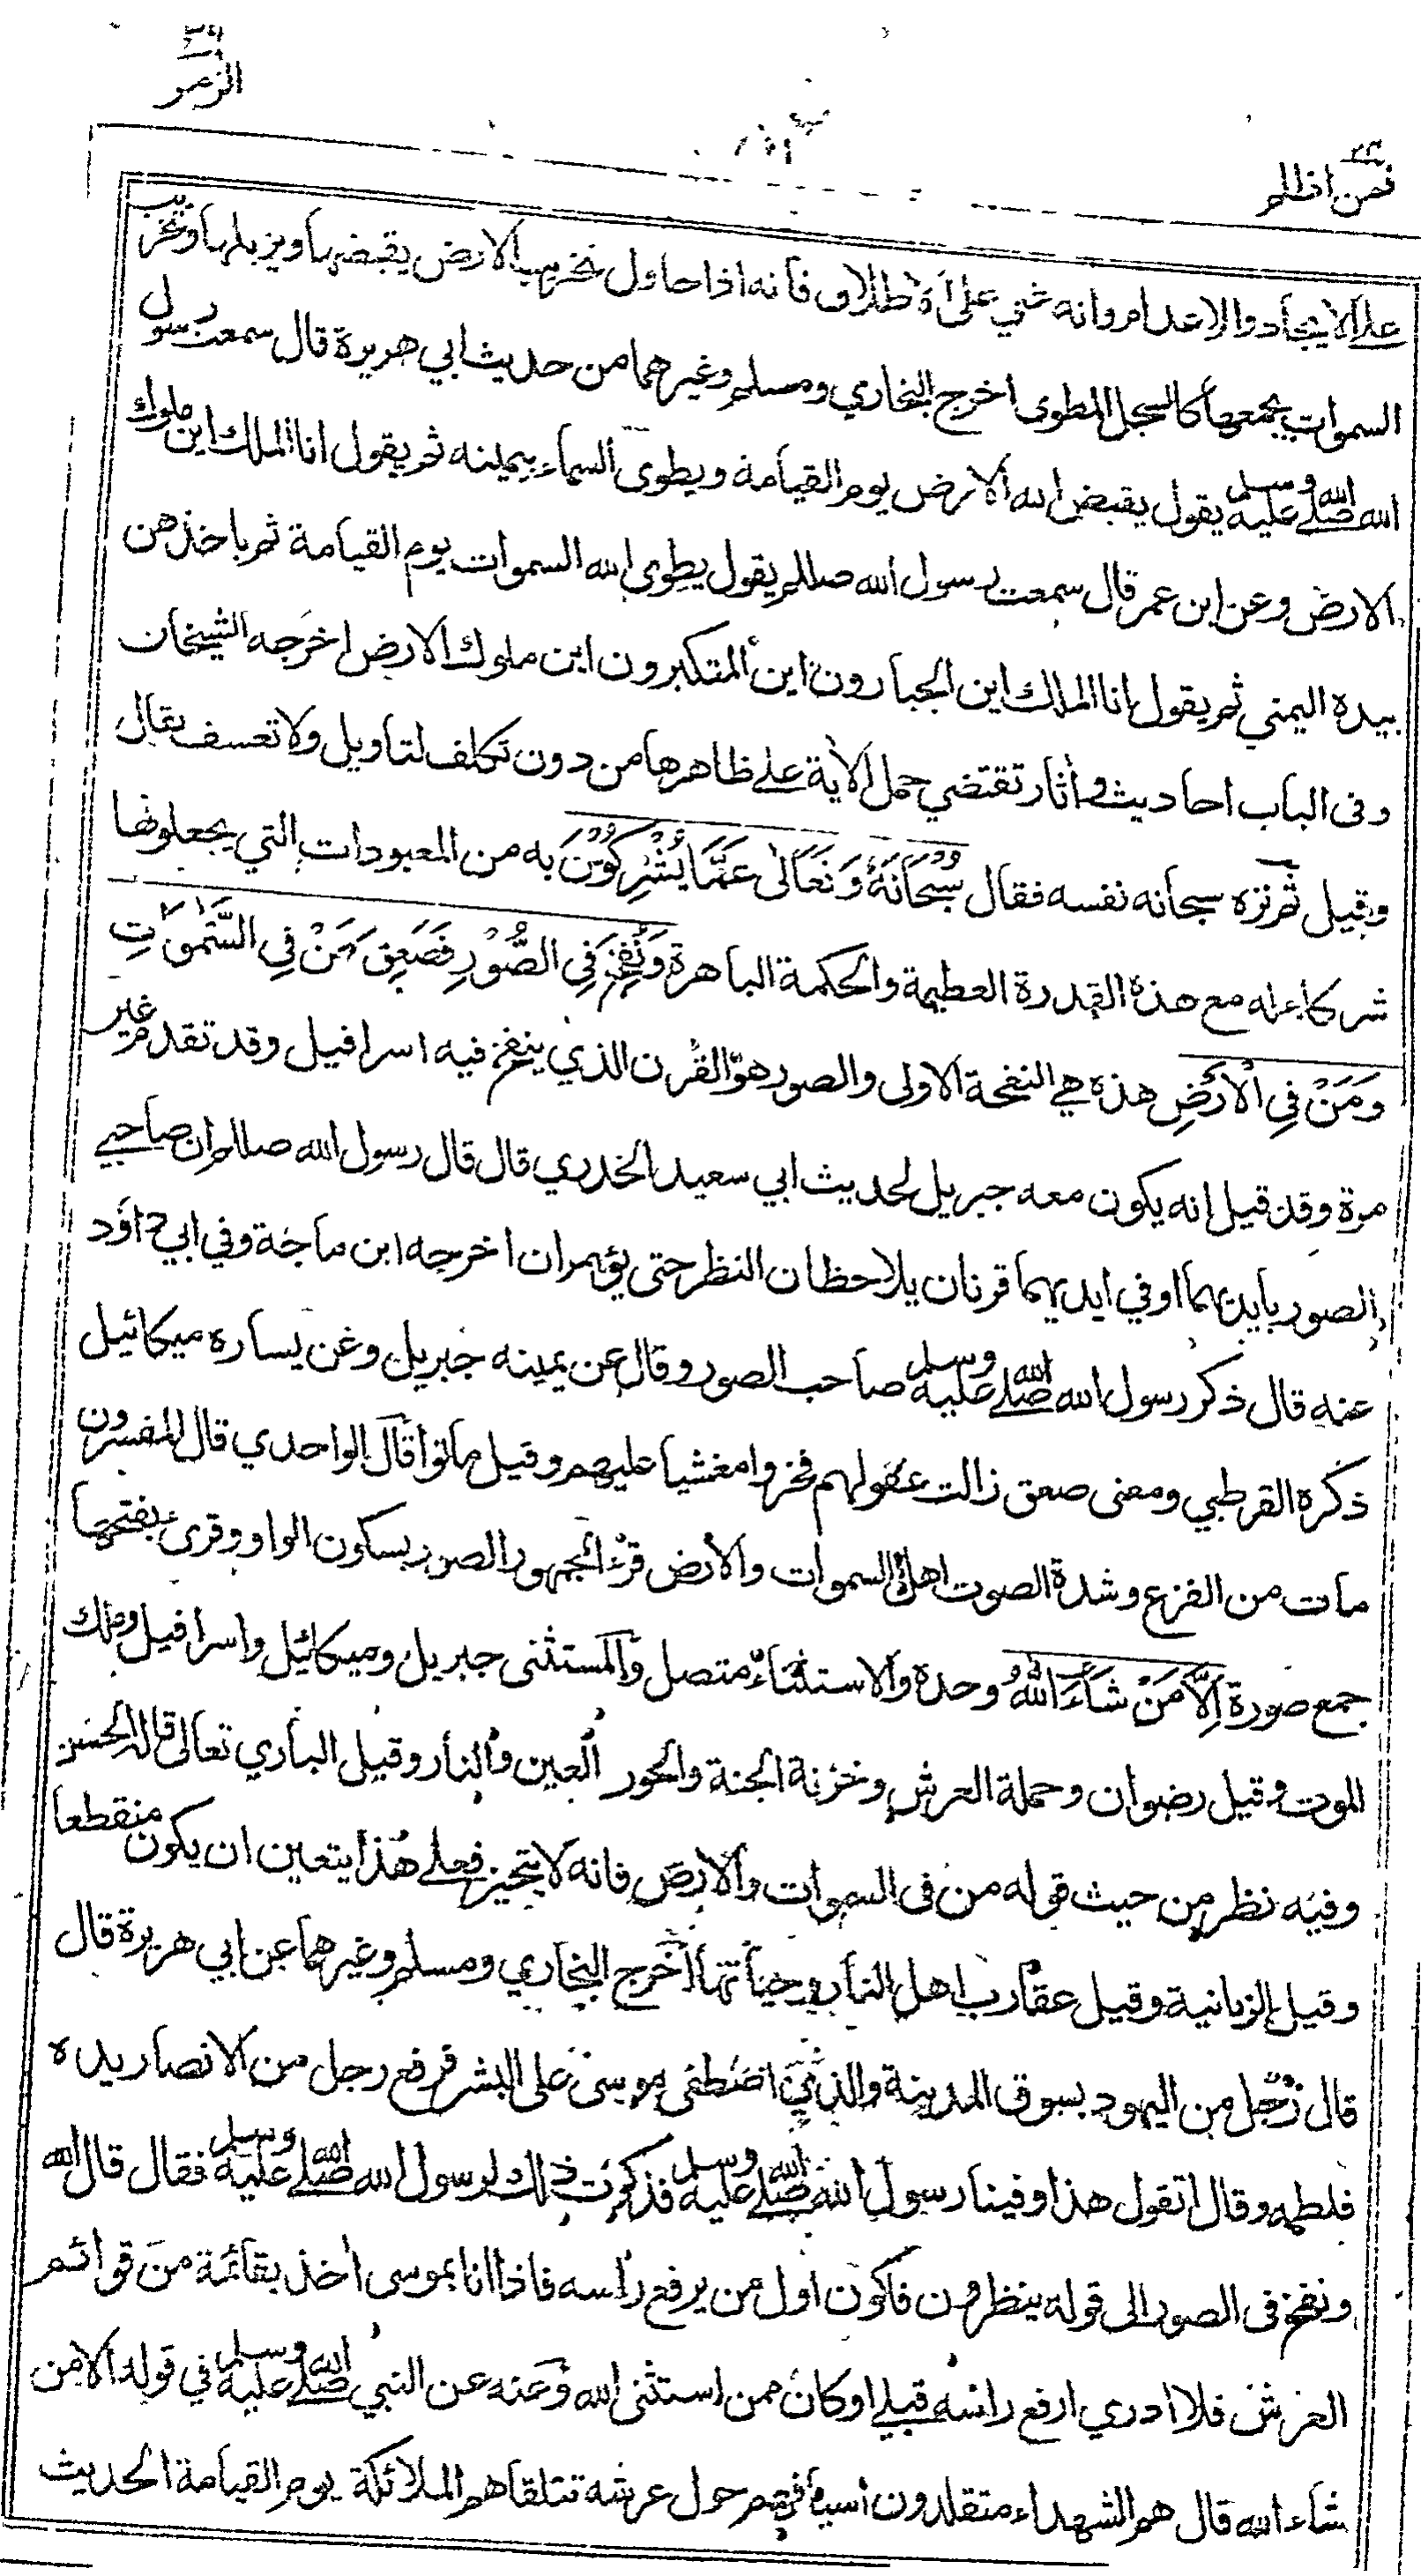 ٣٩
الزمر
٢٤
فمن اظلم
على الايجاد والاعدام وانه غني على الاطلاق فانه اذا حاول تخريب الارض يقبضها ويزيلها وتخريب
السموات يجمعها كالسجل المطوى اخرج البخاري ومسلم وغيرهما من حديث ابي هريرة قال سمعت رسول
الله صلى الله عليه وسلم يقول يقبض الله الارض يوم القيامة ويطوى السماء بيمينه ثم يقول انا الملك اين ملوك
الارض وعن ابن عمر قال سمعت رسول الله صللم يقول يطوى الله السموات يوم القيامة ثم ياخذهن
بيده اليمنى ثم يقول انا الملك اين الجبارون اين المتكبرون اين ملوك الارض اخرجه الشيخان
وفى الباب احاديث وأثار تقتضي حمل الآية على ظاهرها من دون تكلف لتاويل ولا تعسف لقال
وقيل ثم نزه سبحانه نفسه فقال سُبْحَانَهُ وَتَعَالٰى عَمَّا يُشْرِكُوْنَ به من المعبودات التي يجعلونها
شركاء له مع هذه القدرة العظيمة والحكمة الباهرة وَنُفِخَ فِي الصُّوْرِ فَصَعِقَ مَنْ فِي السَّمٰوٰتِ
وَمَنْ فِي الْاَرْضِ هذه هي النفخة الاولى والصور هو القرن الذي ينفخ فيه اسرافيل وقد تقدم غير
مرة وقد قيل انه يكون معه جبريل لحديث ابي سعيد الخدري قال قال رسول الله صللم ان صاحبي
الصور بايديهما او في ايديهما قرنان يلاحظان النظر حتى يؤمران اخرجه ابن ماجة وفي ابي داؤد
عنه قال ذكر رسول الله صلى الله عليه وسلم صاحب الصور وقال عن يمينه جبريل وعن يساره ميكائيل
ذكره القرطبي ومعنى صعق زالت عقولهم فخروا مغشيا عليهم وقيل ماتوا قال الواحدي قال المفسرون
مات من الفزع وشدة الصوت اهل السموات والارض قرئ الجمهور الصور بسكون الواو وقرئ بفتحها
جمع صورة اِلَّا مَنْ شَاءَ اللّٰهُ وحده والاستثناء متصل والمستثنى جبريل وميكائيل واسرافيل وملك
الموت وقيل رضوان وحملة العرش وخزنة الجنة والحور العين والنار وقيل الباري تعالى قاله الحسن
وفيه نظر من حيث قوله من فى السموات والارض فانه لا يتحيز فعلى هذا يتعين ان يكون منقطعا
وقيل الزبانية وقيل عقارب اهل النار وحياتها اخرج البخاري ومسلم وغيرهما عن ابي هريرة قال
قال رجل من اليهود بسوق المدينة والذي اصطفى موسى على البشر فرفع رجل من الانصار يده
فلطمه وقال اتقول هذا وفينا رسول الله صلى الله عليه وسلم فذكرت ذلك لرسول الله صلى الله عليه وسلم فقال قال الله
ونفخ فى الصور الى قوله ينظرون فاكون اول من يرفع راسه فاذا انا بموسى أخذ بقائمة من قوائم
العرش فلا ادري ارفع راسه قبلي او كان ممن استثنى الله وعنه عن النبي صلى الله عليه وسلم في قوله الا من
شاء الله قال هم الشهداء متقلدون اسيافهم حول عرشه تتلقاهم الملائكة يوم القيامة الحديث